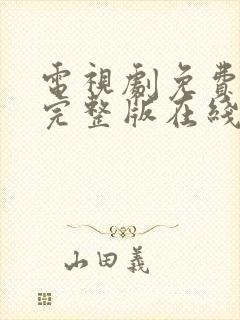 電視劇免費
完整版在綫
山田義